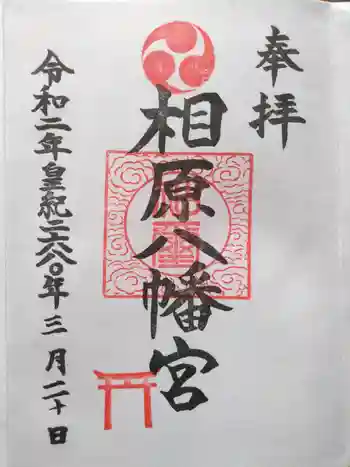 奉拝
相原八幡宮
令和二年皇紀二六八〇年三月二十日